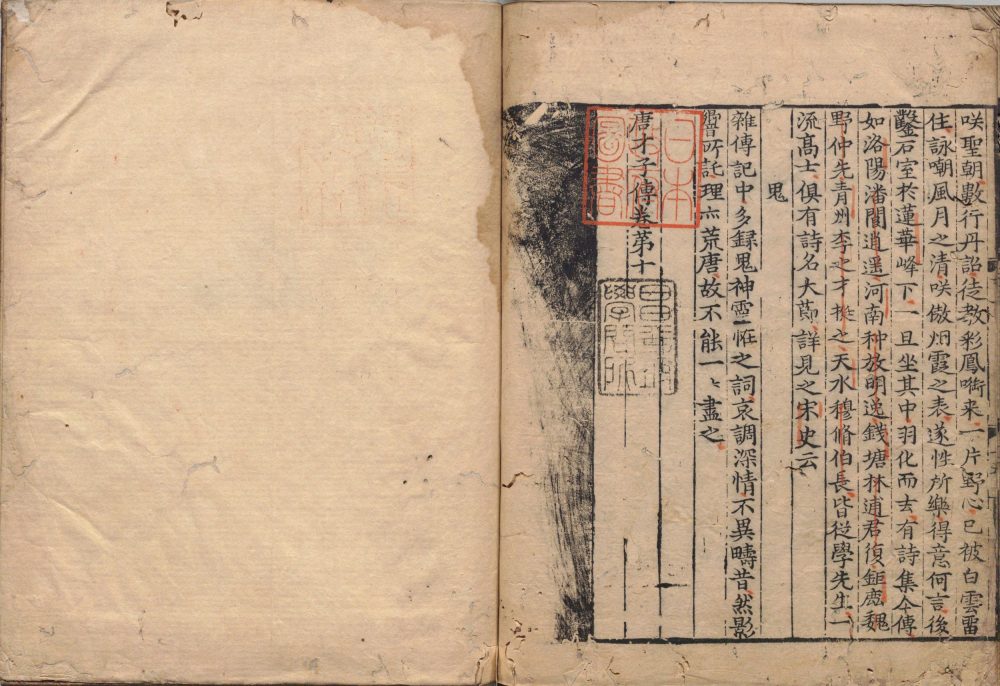 咲聖朝數行丹詔徒教彩鳳啣来一片野心已被白雲畱
住詠嘲風月之清咲傲烟霞之表遂性所樂得意何言後
鑿石室於蓮華峰下一旦坐其中羽化而去有詩集今傳
如洛陽潘閬逍遥河南种放明逸錢塘林逋君復鉅鹿魏
野仲先青州李之才挺之天水穆脩伯長皆從學先生一
流髙士俱有詩名大節詳見之宋史云
鬼
雜傳記中多録鬼神靈恠之詞哀調深情不異疇昔然影
響所託理亦荒唐故不能一〻盡之
唐才子傳卷第十
日本
政府
圖書
昌平坂
學問所